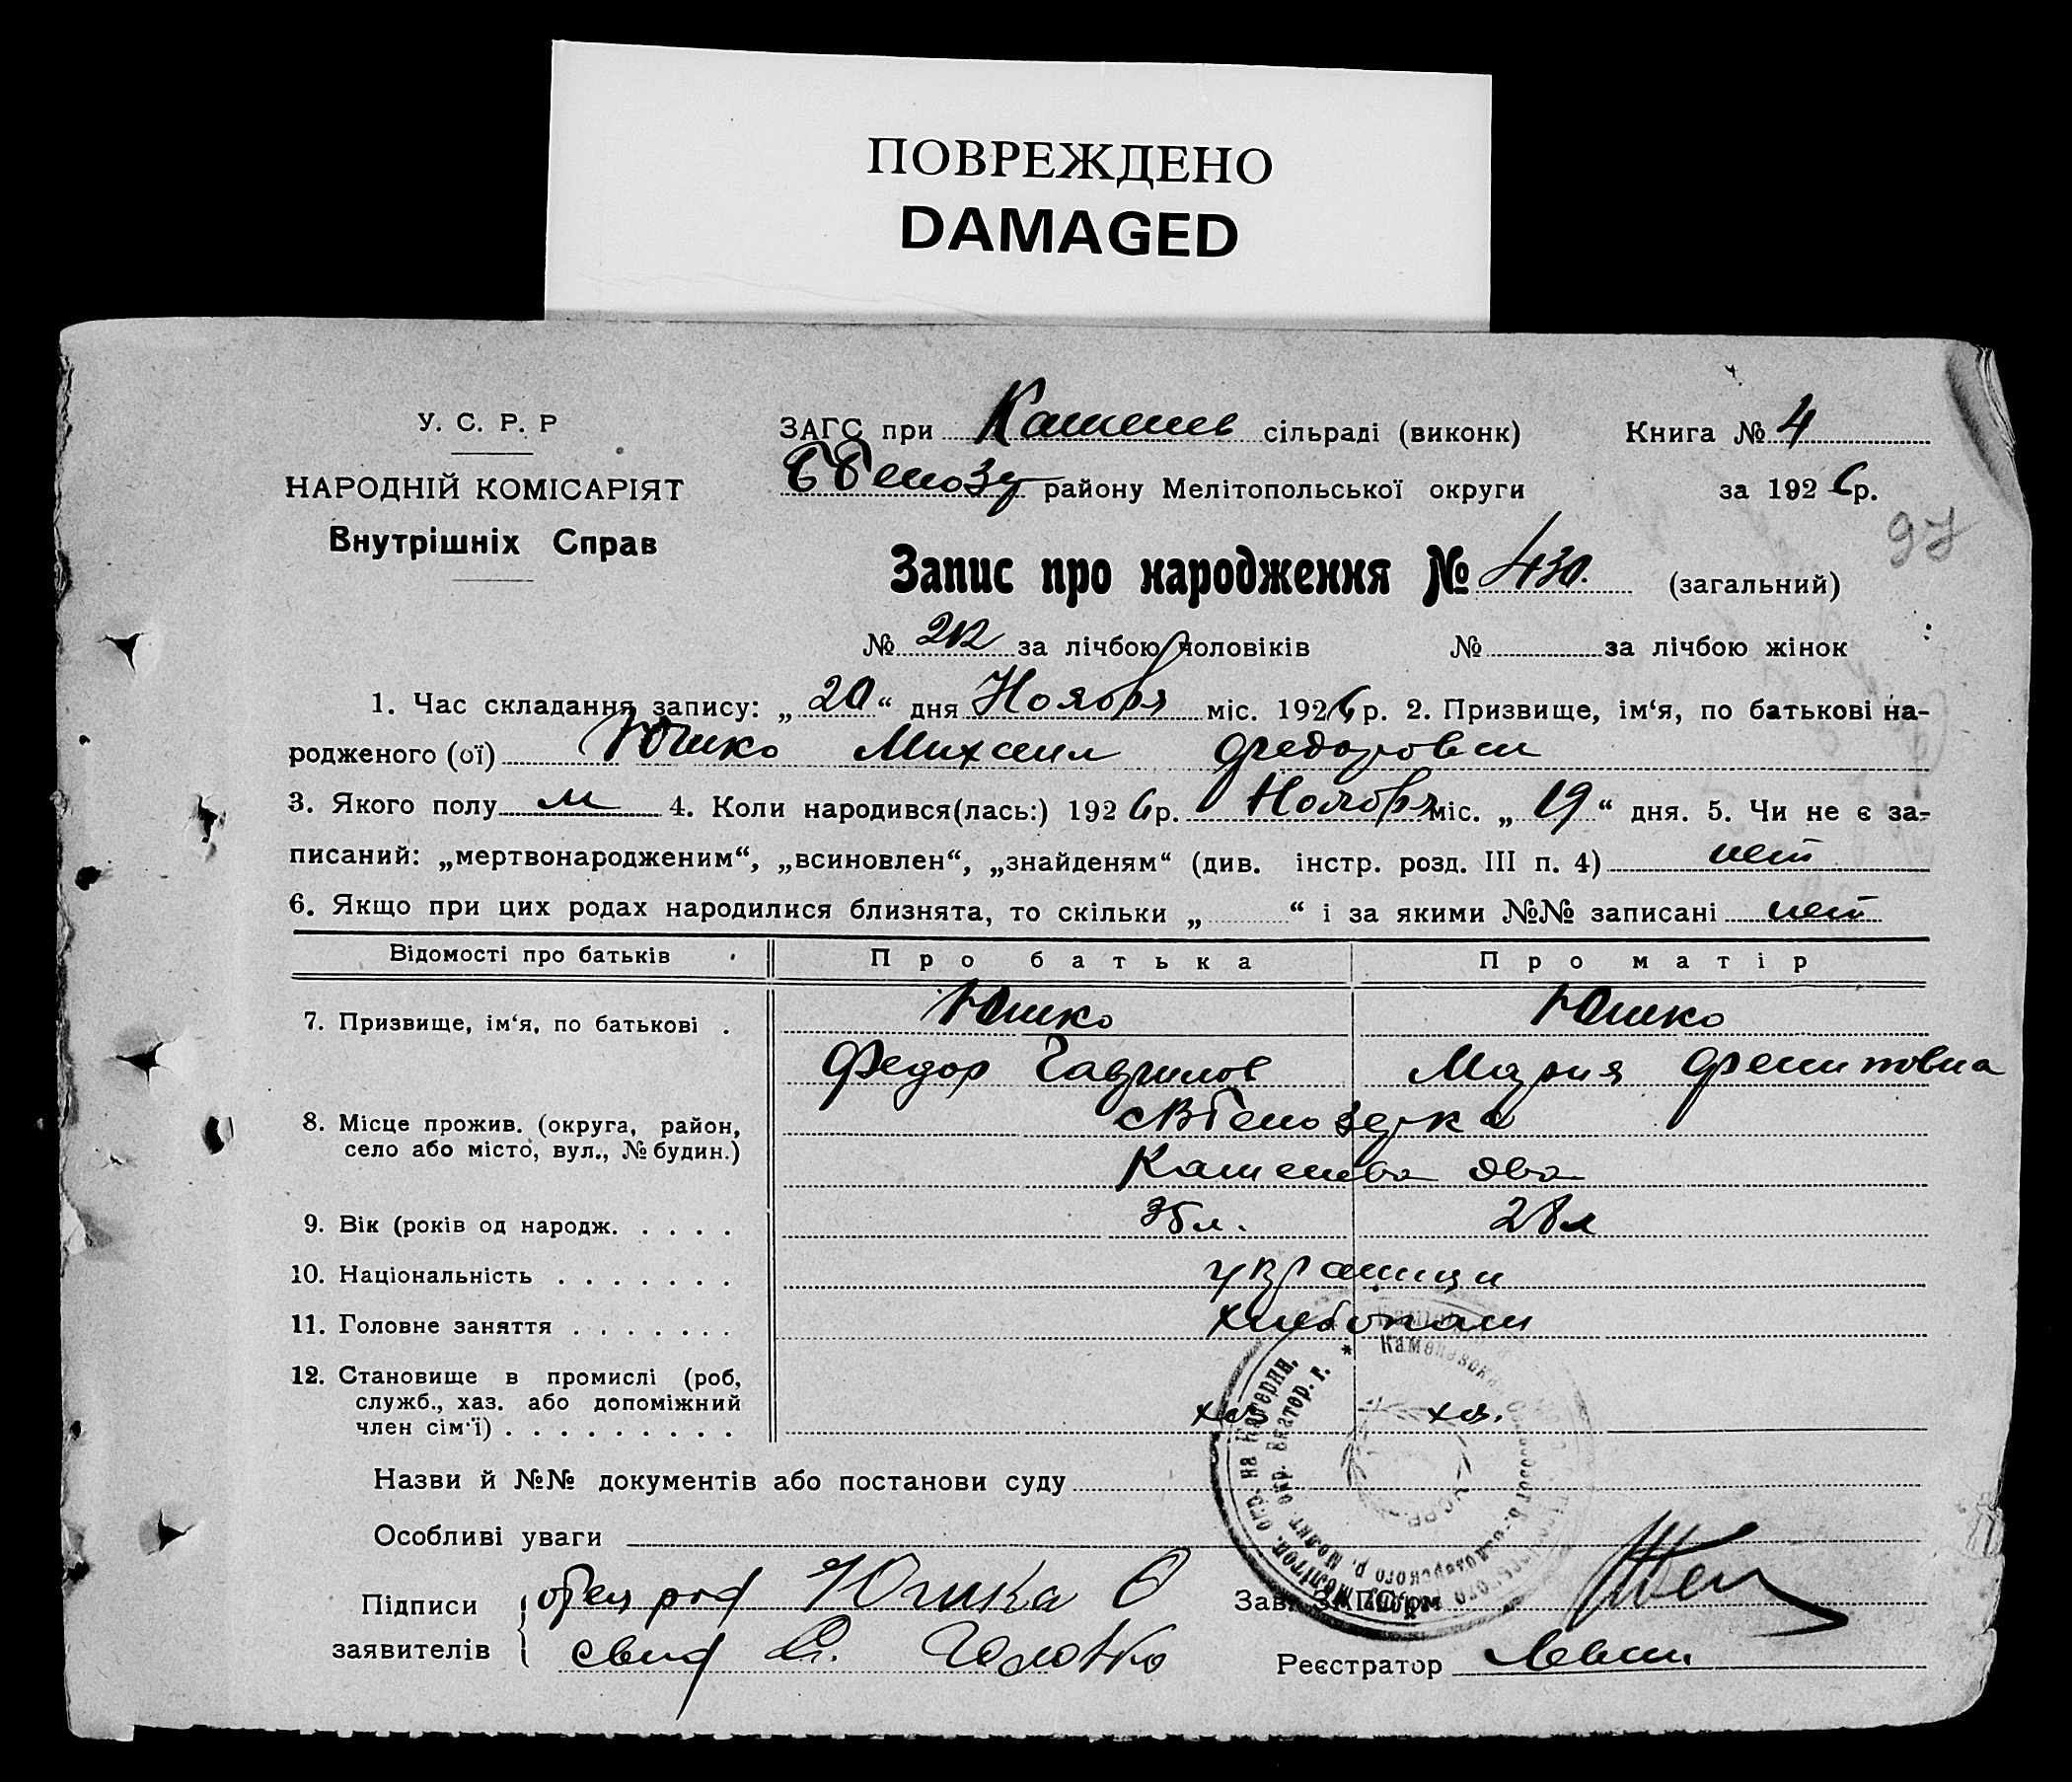 ПОВРЕЖДЕНО
DAMAGED
У. С. Р. Р
НАРОДНІЙ КОМІСАРІЯТ
Внутрішніх Справ
ЗАГС при Каменев сільраді (виконк) Книга № 4
району Мелітопольської округи за 1926 р.
97
Запис про народження № 430. (загальний)
№ 212 за лічбою чоловіків № за лічбою жінок
1. Час складання запису: „20“ дня Ноября міс. 1926 р. 2. Призвище, ім‘я, по батькові на-
родженого (ої) Юшко Михаил Федорович
3. Якого полу м 4. Коли народився(лась:) 1926 р. Ноября міс. „19“ дня. 5. Чи не є за-
писаний: „мертвонародженим“, „всиновлен“, „знайденям“ (див. інстр. розд. III п. 4) нет
6. Якщо при цих родах народилися близнята, то скільки „ “ і за якими №№ записані нет
Відомості про батьків Про батька Про матір
7. Призвище, ім‘я, по батькові . Юшко Юшко
Федор Гаврилов Мария Филиповна
8. Місце прожив. (округа, район,
село або місто, вул., № будин.)
Каменева
9. Вік (років од народж. . . . . 35 л. 28 л
10. Національність . . . . . . . украинци
11. Головне заняття . . . . . . . хлебопаш
12. Становище в промислі (роб,
служб., хаз. або допоміжний
член сім‘ї) . . . . . . . . . хоз хоз.
Назви й №№ документів або постанови суду
Особливі уваги
Підписи Юшка Ф Зав. ЗАГС‘ом
заявителів свид Головко Реєстратор